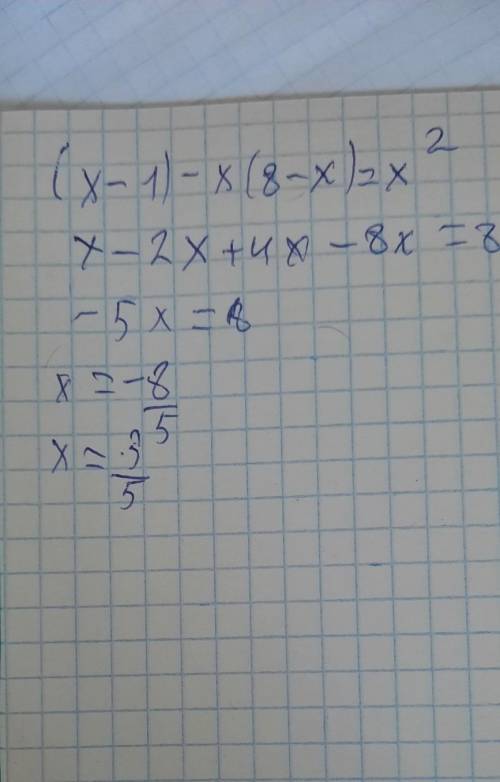 (x-1)-x(8-x)=x²
x-2x+4x-8x=8
-5x=8
x=-8/5
x=3/5